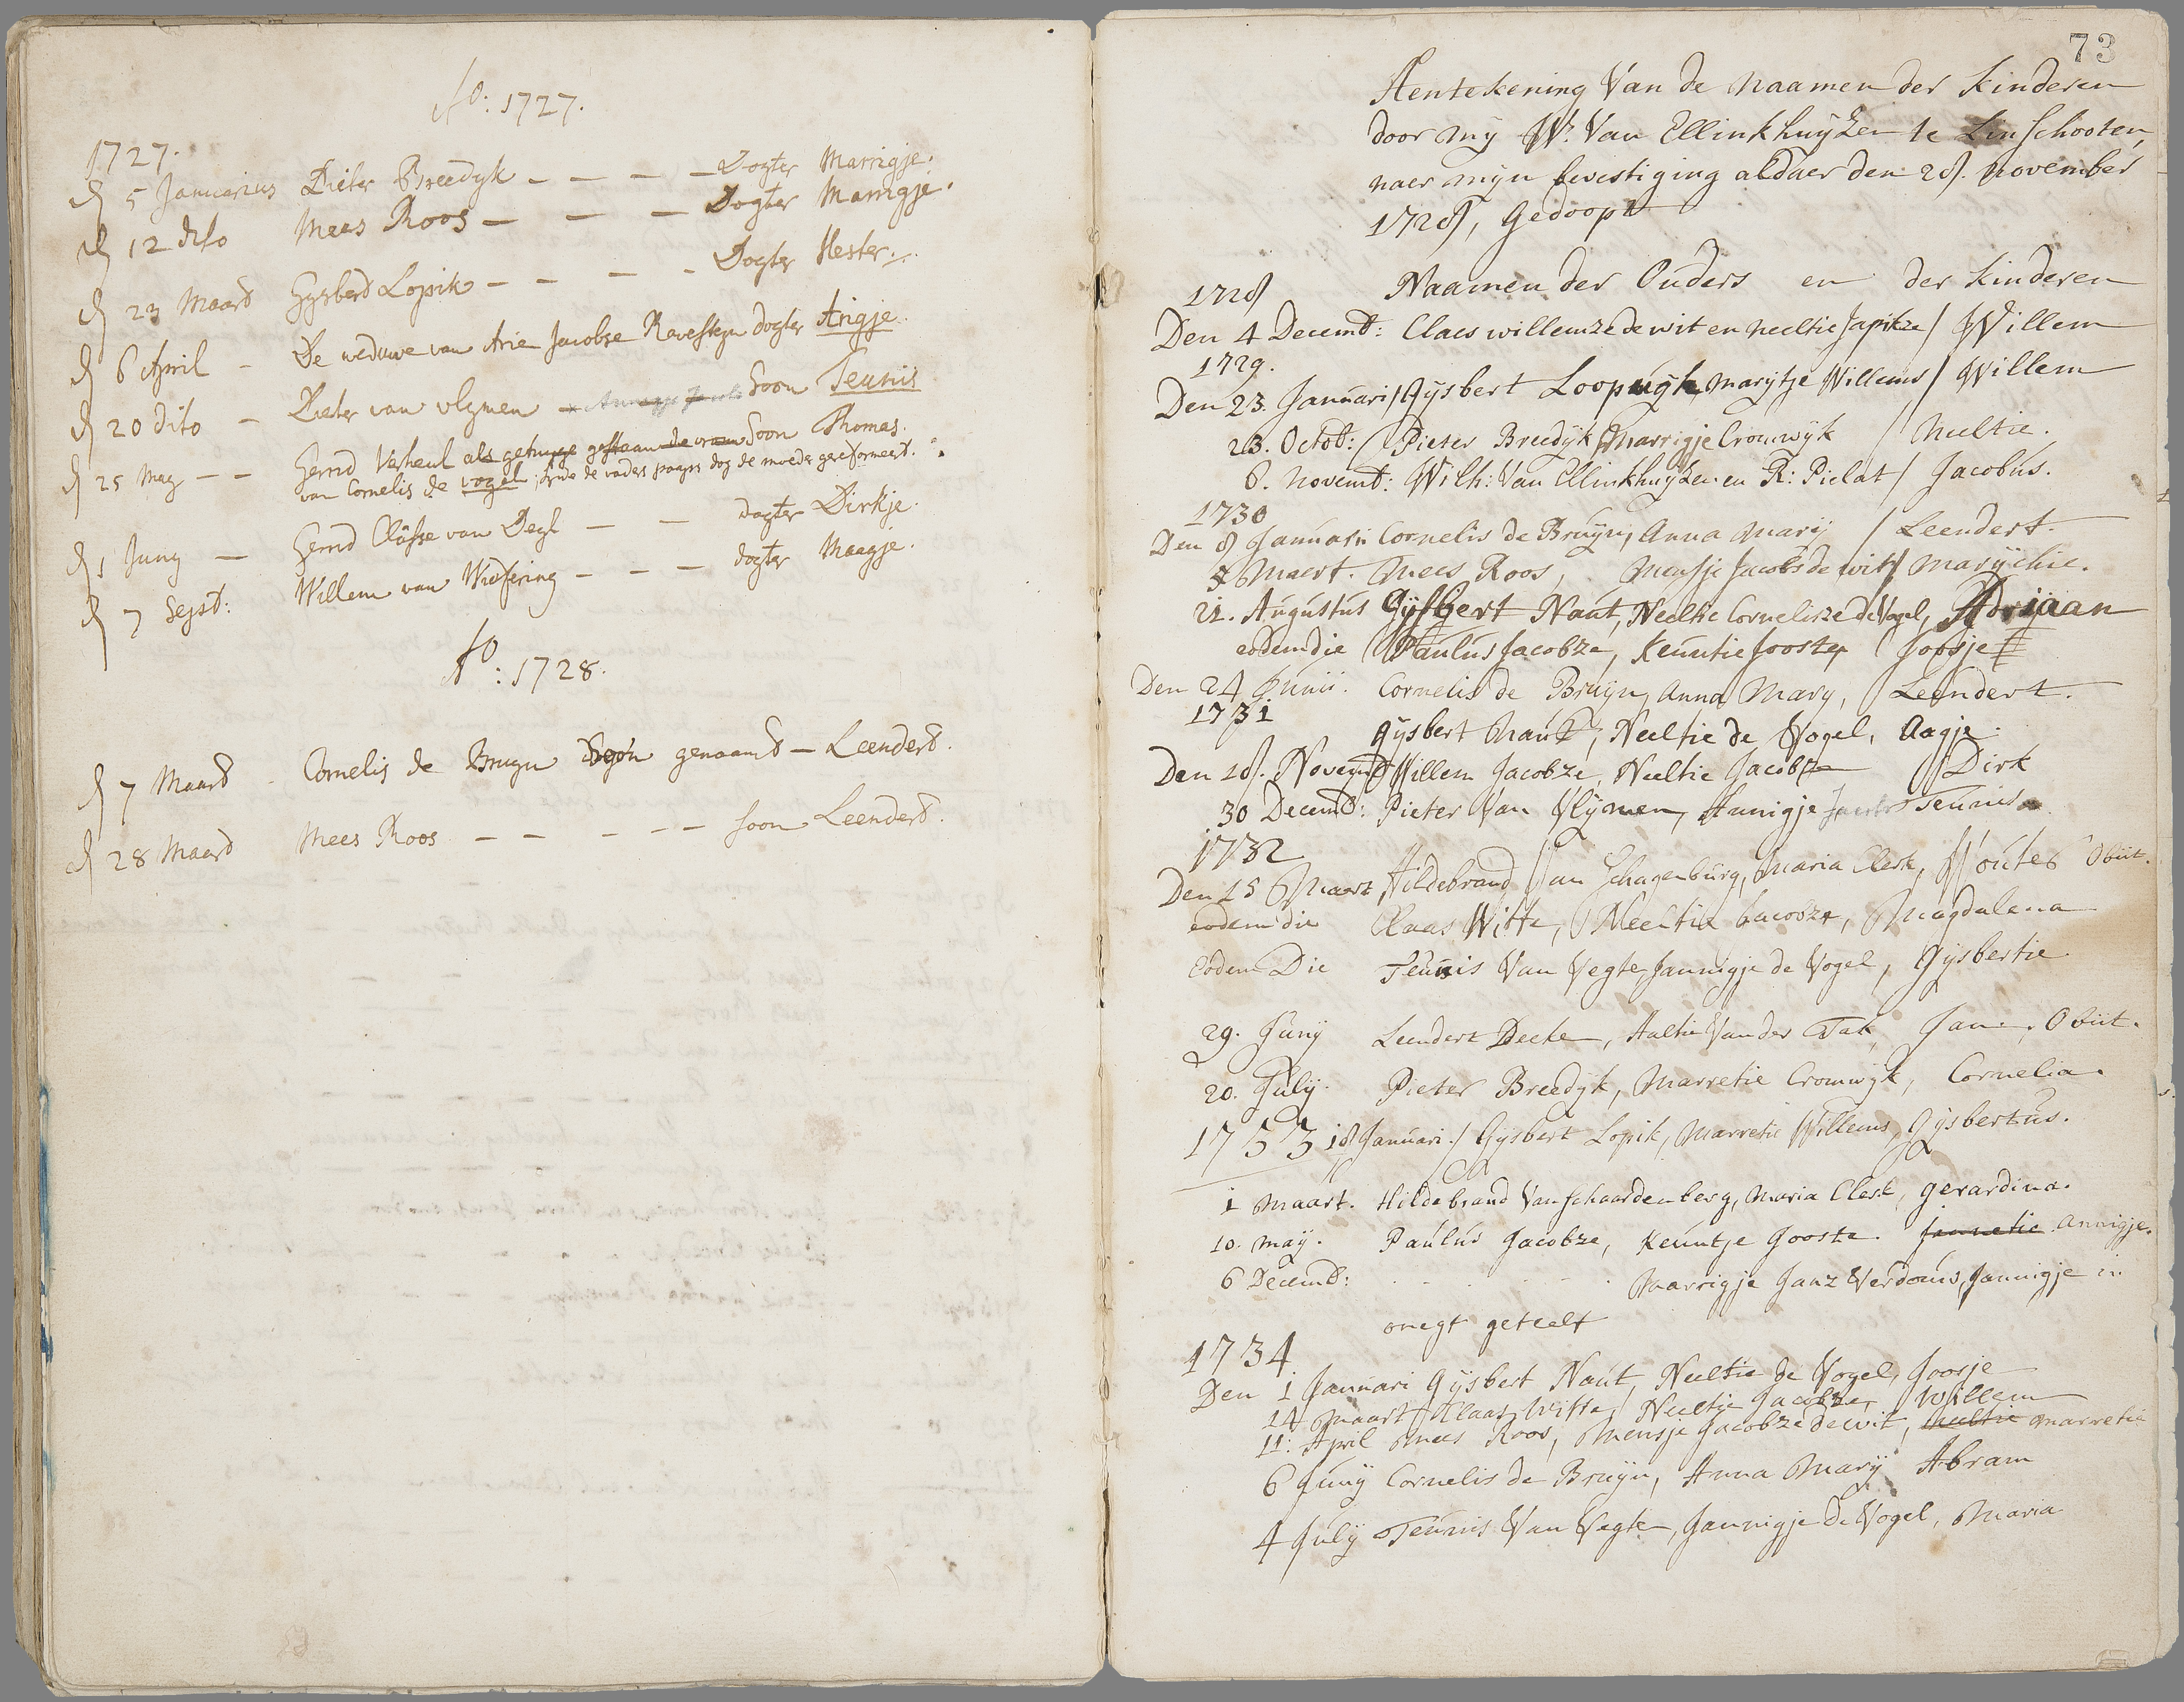 Ao: 1727.
1727.
d 5 Januarius Pieter Breedyk - - - - Dogter Marrigje.
d 12 dito Mees Roos - - - Dogter Marrigje.
d 23 Maard Gysberd Lopik - - - - Dogter Hester.
d 6 April - De weduwe van Arie Jacobse Ravesteyn dogter Arigje.
d 20 dito - Pieter van vlymen Soon Teunis
d 25 May - - Gerrid Verheul als getuyge gestaan de vrouw Soon Thomas.
van Cornelis de vogel, de vader paaps dog de moeder gereformeert.
d 1 Juny - Gerrid Classe van - - dogter Dirkje.
d 7 Sept: Willem van - - - dogter Maagje.
Ao: 1728.
d 7 Maard - Cornelis de Bruyn Soon genaamd - Leenderd.
d 28 Maard Mees Roos - - - - - soon Leenderd.
73
Aentekening Van de Naamen der Kinderen
door my W. Van Ellinkhuyzen te Linschooten,
naer mijn bevestiging aldaer den 28. November
1728, Gedoopt
1728 Naamen der Ouders en der Kinderen
Den 4 Decemb: Claes willemze de wit en neeltie Japikze / Willem
1729.
Den 23. Januari / Gysbert Loopwyk, marytje Willems / Willem
23. Octob: Pieter Breedyk, Marrigje Cromwyk / Neeltie.
8. Novemb: Wilh: Van Ellinkhuyzen en R: Pielat / Jacobus.
1730
Den 8 Januarii Cornelis de Bruyn, Anna Mary / Leendert.
Maert. Mees Roos, Mensje Jacobs de wit / Marychie.
21. Augustus Gysbert Naut, Neeltie Cornelisze de Vogel, Adriaan
eodem die Paulus Jacobze, Keuntie Jooste Joosje
Den 24 Junii. Cornelis de Bruyn, Anna Mary, Leendert.
1731
Gysbert Naut, Neeltie de Vogel, Aagje.
Den 18. Novemb Willem Jacobze, Neeltie Jacobze Dirk
30 Decemb: Pieter Van Vlymen, Annigje Teunis
1732
Den 15 Maart Hildebrand Van Schagenburg, Maria Clerk, Wouter Obiit.
eodem die Claas Witte, Neeltie Jacobze, Magdalena
Eodem Die Teunis Van Vegte, Jannigje de Vogel, Gysbertie
29. Juny Leendert Decke, Aaltie Van der Tak, Jan. Obiit.
20. July Pieter Breedyk, Marretie Cromwyk, Cornelia.
1733 18 Januari. / Gysbert Lopik, Marretie Willems, Gysbertus.
1 Maart. Hildebrand Van Schaardenberg, Maria Clerk, gerardina.
10. May. Paulus Jacobze, Keuntje Jooste. Jannetie Annigje.
6 Decemb: . - . - . - . Marrigje Janz Verdouis, Jannigje in
onegt geteelt
1734
Den 1 Januari Gysbert Naut, Neeltie de Vogel, Joosje
14 Maart Klaas Witte, Neeltje Jacobze, Willem
11: April Mees Roos, Mensje Jacobze de wit, Neeltie Marretie
6 Juny Cornelis de Bruyn, Anna Mary Abram
4 July Teunis Van Vegte, Jannigje de Vogel, Maria